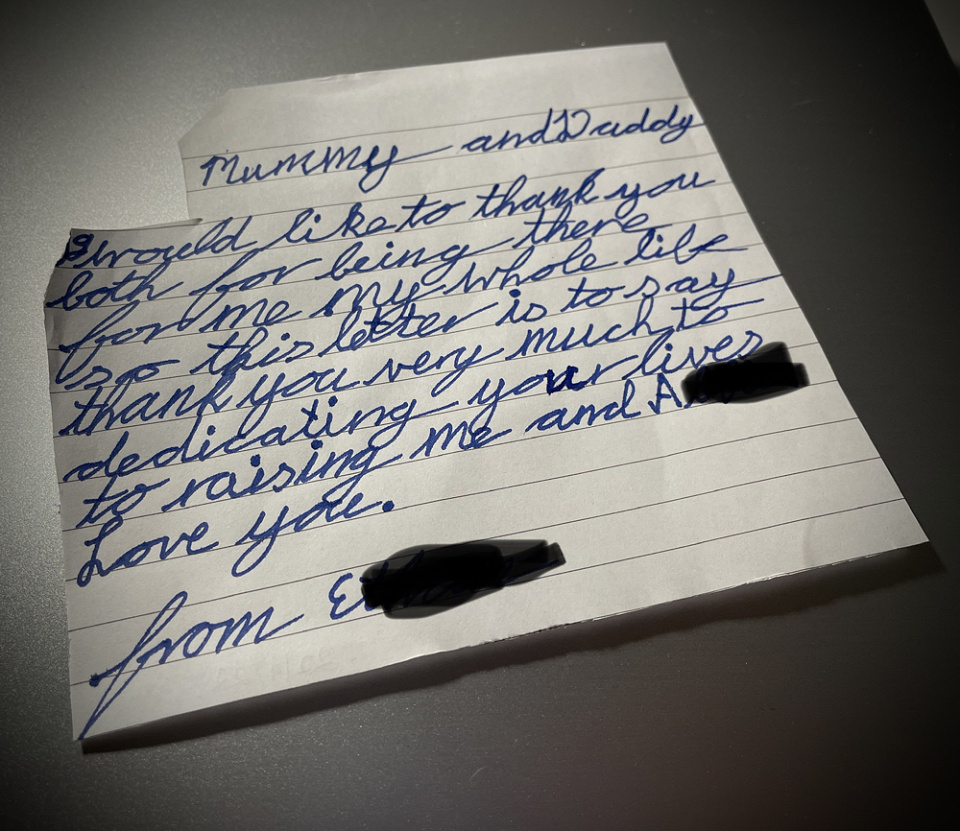 Mummy and Daddy
I would like to thank you
both for being there
for me my whole life
so this letter is to say
thank you very much to
dedicating your lives
to raising me and A
Love you.
from E